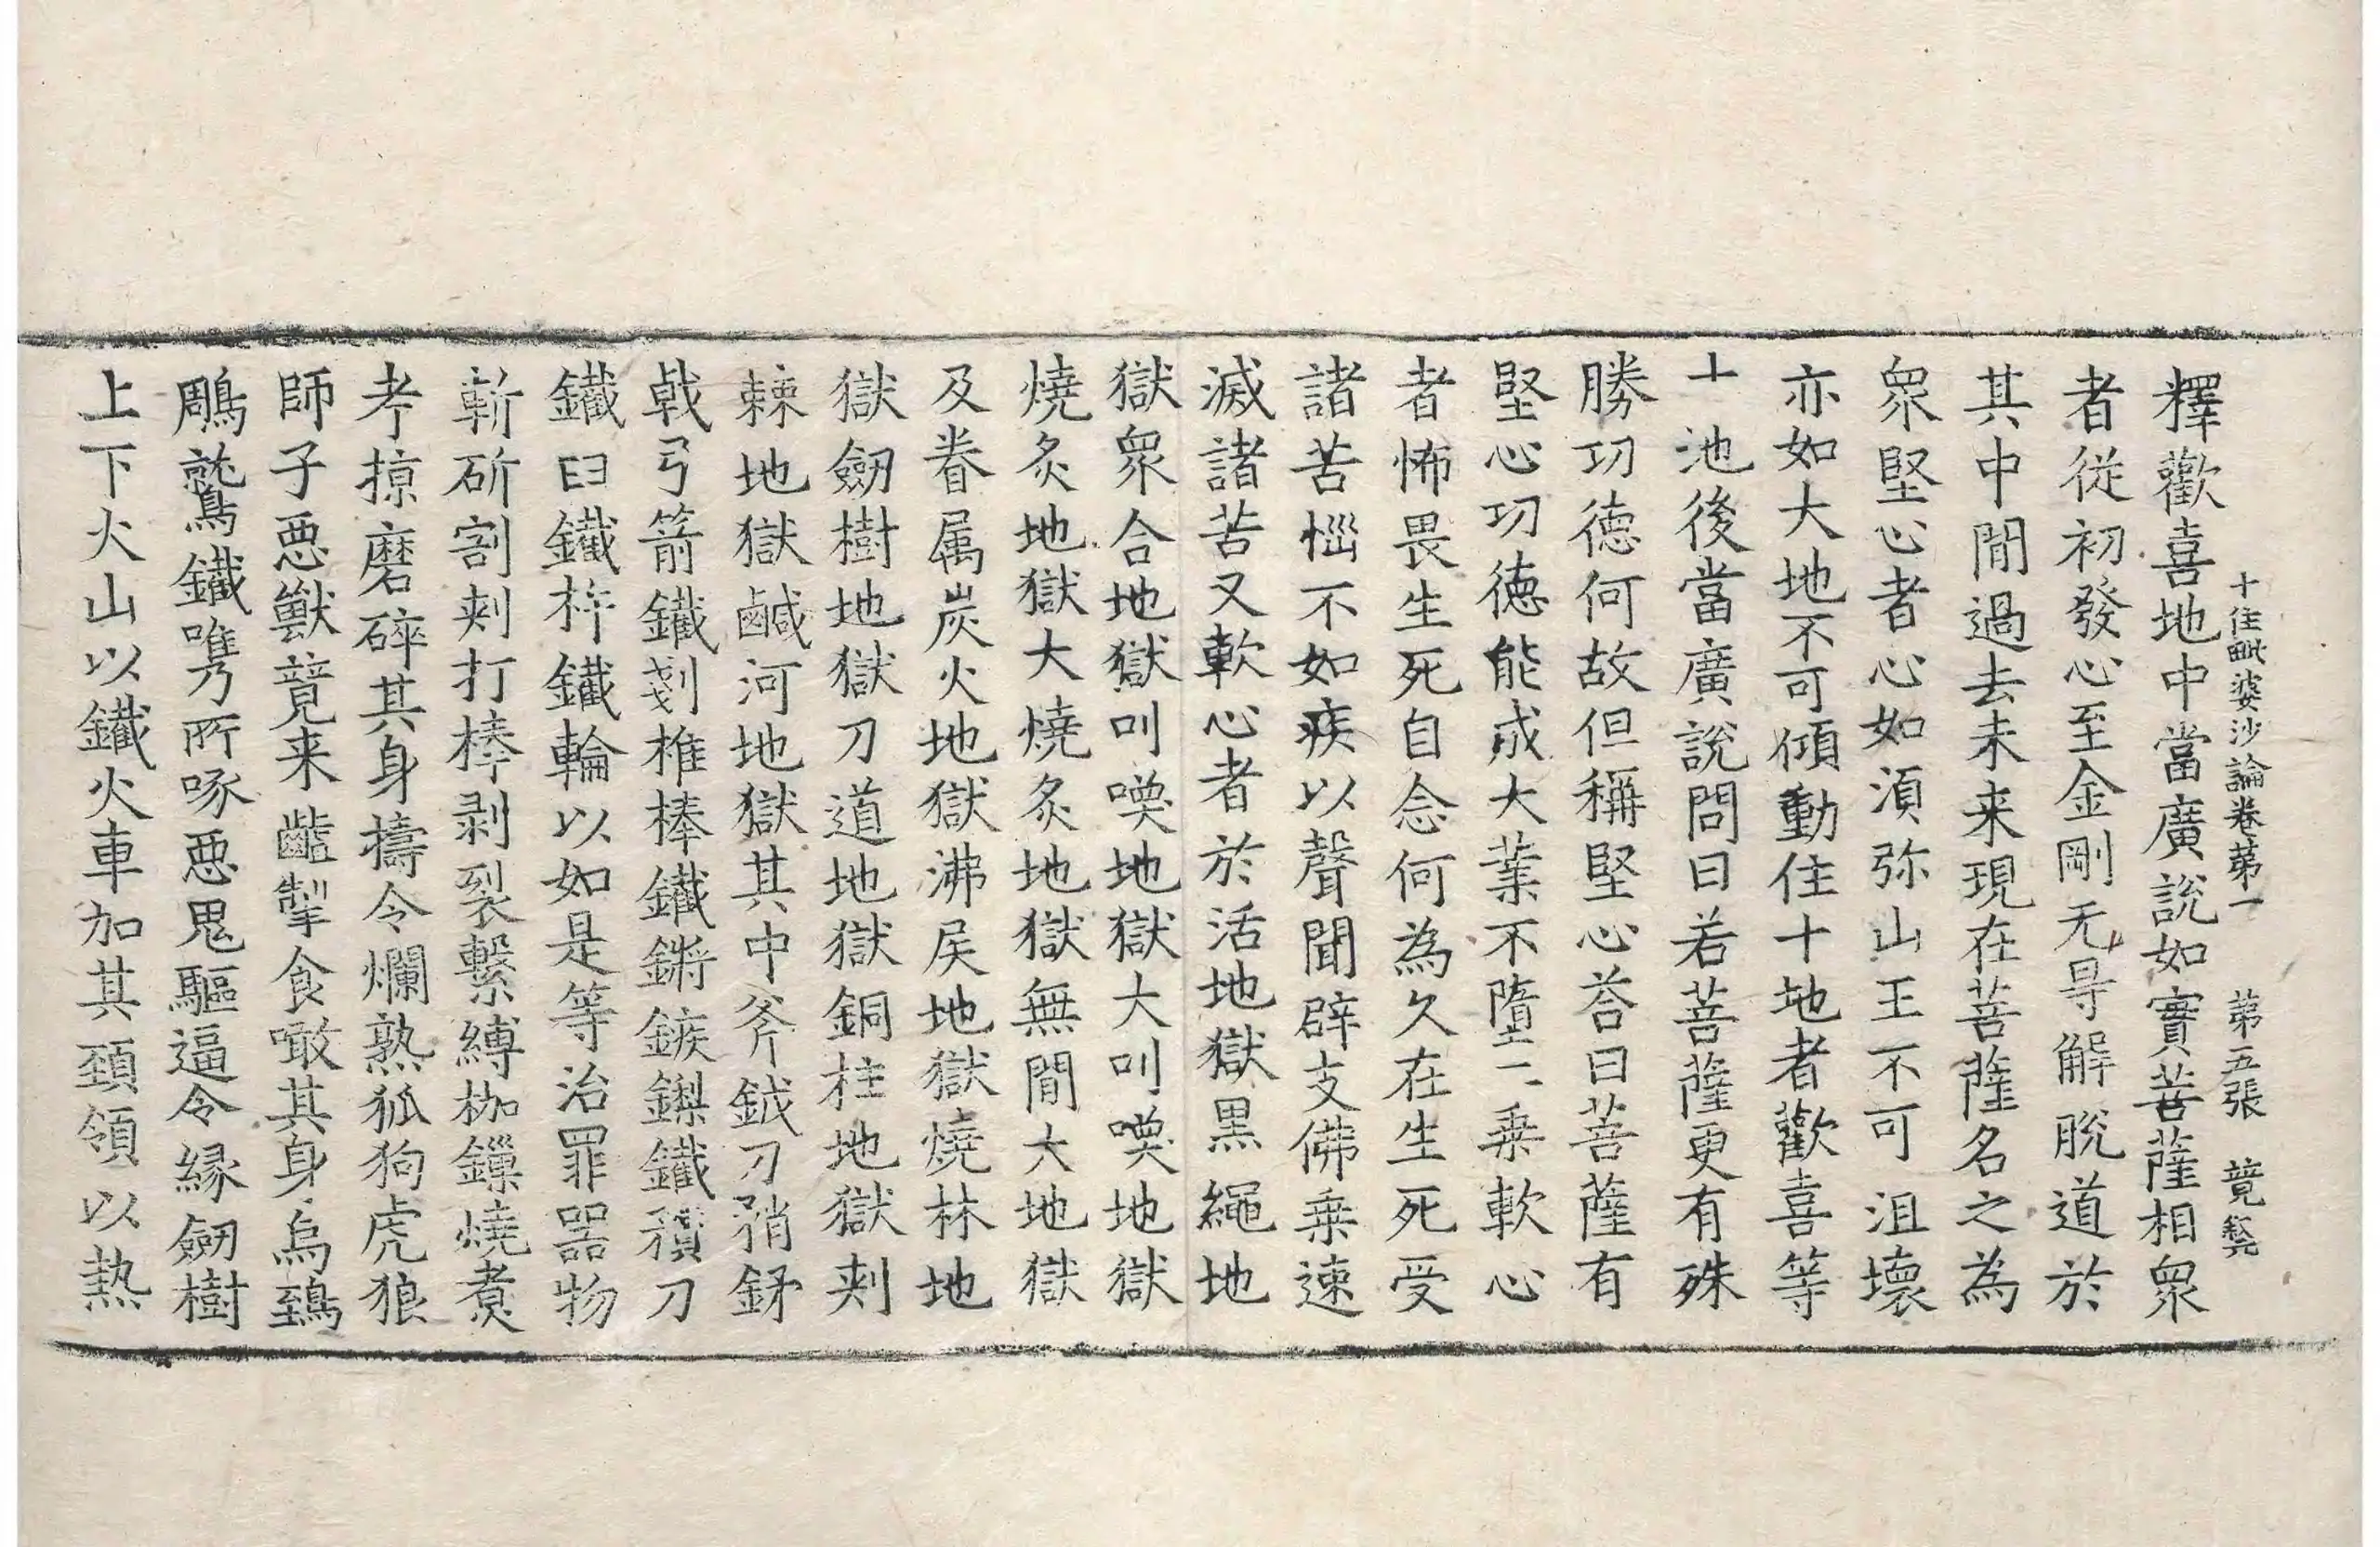 釋歡喜地中當廣說如實菩薩相衆
十住毗婆沙論卷苐一 苐五張 竟
者從初發心至金剛无㝵解脫道於
其中閒過去未来現在菩薩名之為
衆堅心者心如湏弥山王不可沮壞
亦如大地不可傾動住十地者歡喜等
十地後當廣說問曰若菩薩更有殊
勝功德何故但稱堅心荅曰菩薩有
堅心功德能成大業不墮二乗軟心
者怖畏生死自念何為久在生死受
諸苦惱不如疾以聲聞辟支佛乗速
滅諸苦又軟心者於活地獄黒繩地
獄衆合地獄叫喚地獄大叫喚地獄
燒炙地獄大燒炙地獄無閒大地獄
及眷属炭火地獄沸屎地獄燒林地
獄劒樹地獄刀道地獄銅柱地獄刺
棘地獄鹹河地獄其中斧鉞刀矟鉾
戟弓箭鐵剗椎棒鐵鏘鏃鏁鐵刀
鐵臼鐵杵鐵輪以如是等治罪器物
斬斫割刺打棒剥裂繫縛枷鏁燒煮
考掠磨碎其身擣令爛熟狐狗虎狼
師子惡獸竟来齟掣食噉其身烏鵄
鵰鷲鐵所啄惡鬼驅逼令緣劒樹
上下火山以鐵火車加其頸領以熱